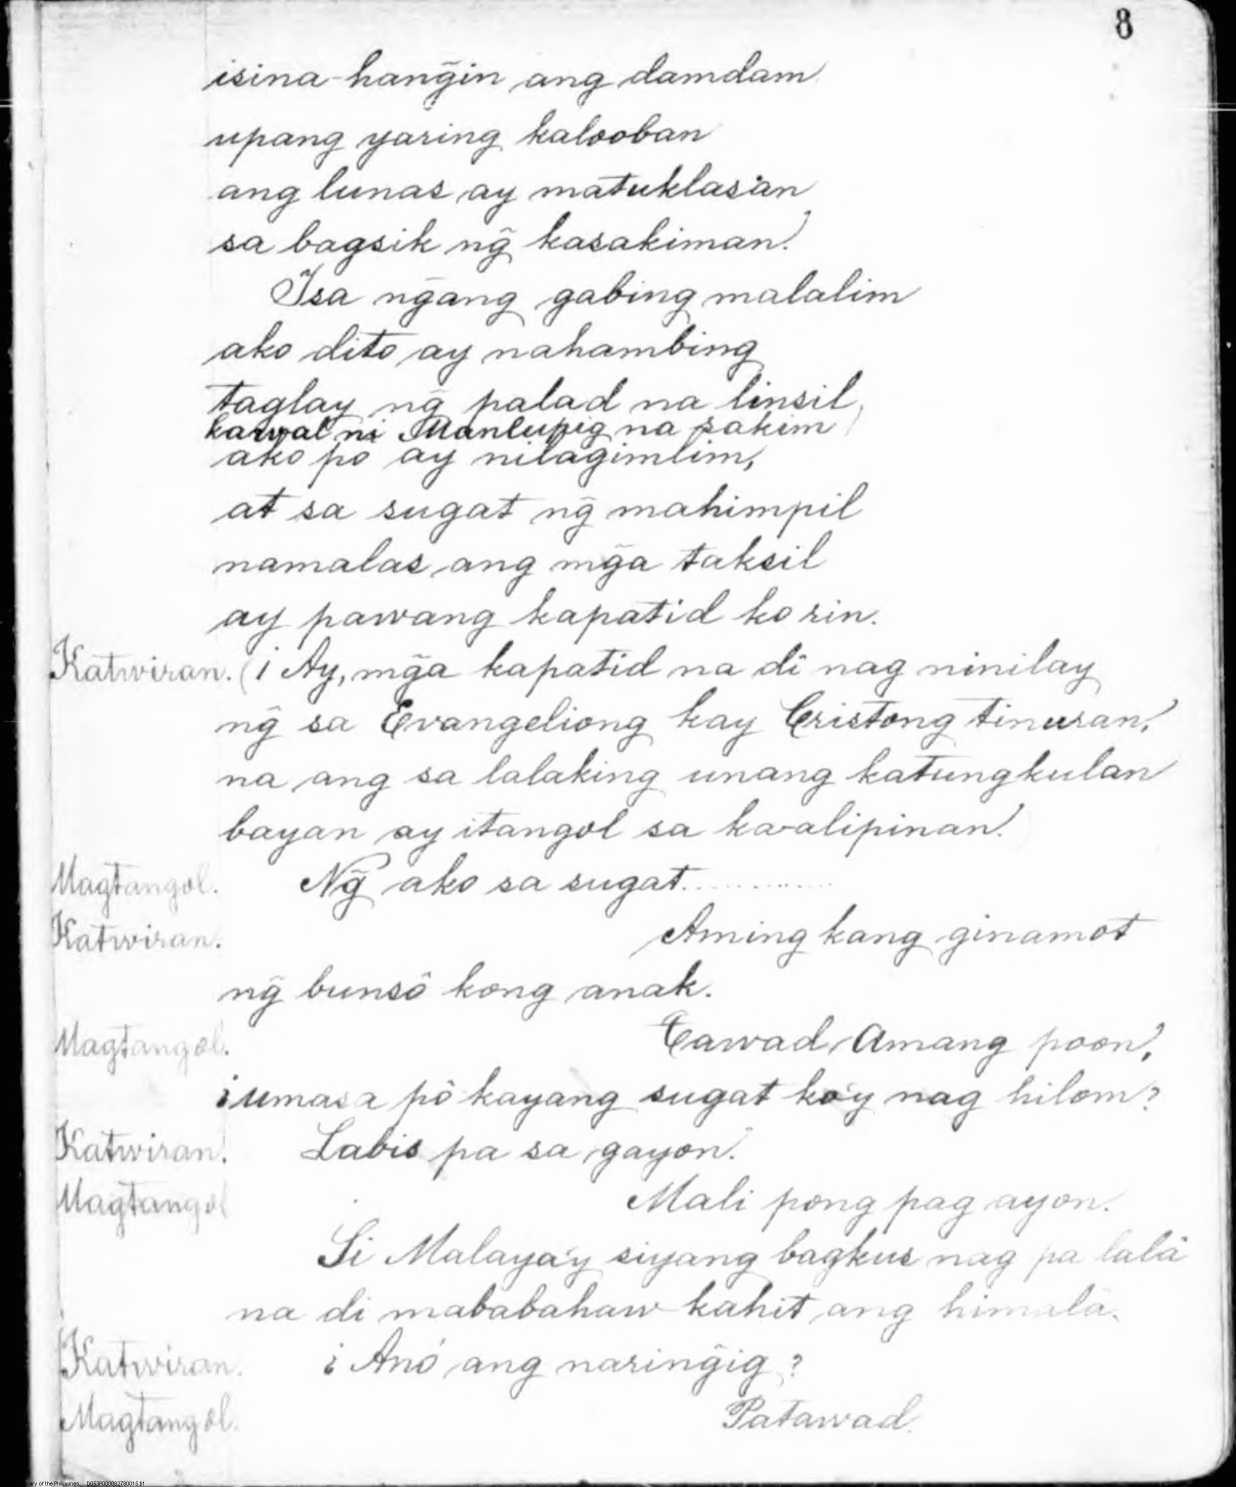 8
isina-hang̃in ang damdam
upang yaring kalooban
ang lunas ay matuklasan
sa bagsik ng̃ kasakiman!
Isa ng̃ang gabing malalim
ako dito ay nahambing
taglay ng̃ palad na linsil,
kawal ni Manlupig na sakim
ako po ay nilagimlim,
at sa sugat ng̃ mahimpil
namalas ang mg̃a taksil
ay pawang kapatid ko rin.
Katwiran. (¡Ay, mg̃a kapatid na di nag ninilay
ng̃ sa Evangeliong kay Cristong tinuran,
na ang sa lalaking unang katungkulan
bayan ay itangol sa kaalipinan!
Magtangol. Ng̃ ako sa sugat............
Katwiran. Aming kang ginamot
ng̃ bunsô kong anak.
Magtangol. Tawad Amang poon,
¿umasa pô kayang sugat ko'y nag hilom?
Katwiran. Labis pa sa gayon.
Magtangol Mali pong pag ayon.
Si Malaya'y siyang bagkus nag pa lalâ
na di mababahaw kahit ang himalâ.
Katwiran. ¿Anó ang naring̃ig?
Magtangol. Patawad.